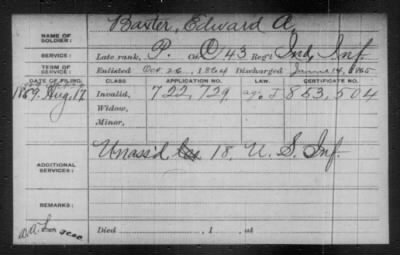 NAME OF SOLDIER: Baxter, Edward A.
SERVICE: Late rank, P. Co. O 43 Reg't Ind. Inf
TERM OF SERVICE: Enlisted Oct 26, 1864 Discharged June 14, 1865
DATE OF FILING. CLASS. APPLICATION NO. LAW. CERTIFICATE NO.
1889. Aug. 17 Invalid, 722,729 J 853,504
Widow,
Minor,
ADDITIONAL SERVICES: Unass'd 18, U. S. Inf.
REMARKS:
Died , 1 , at